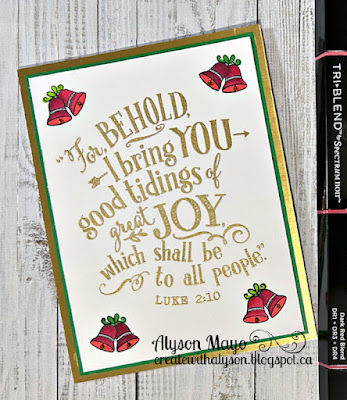 "For, BEHOLD,
I bring YOU
good tidings of
great JOY,
which shall be
to all people."
LUKE 2:10
Alyson Mayo
createwithalyson.blogspot.ca
TRI-BLEND by SPECTRUM NOIR
Dark Red Blend
DR1 + DR3 + DR4